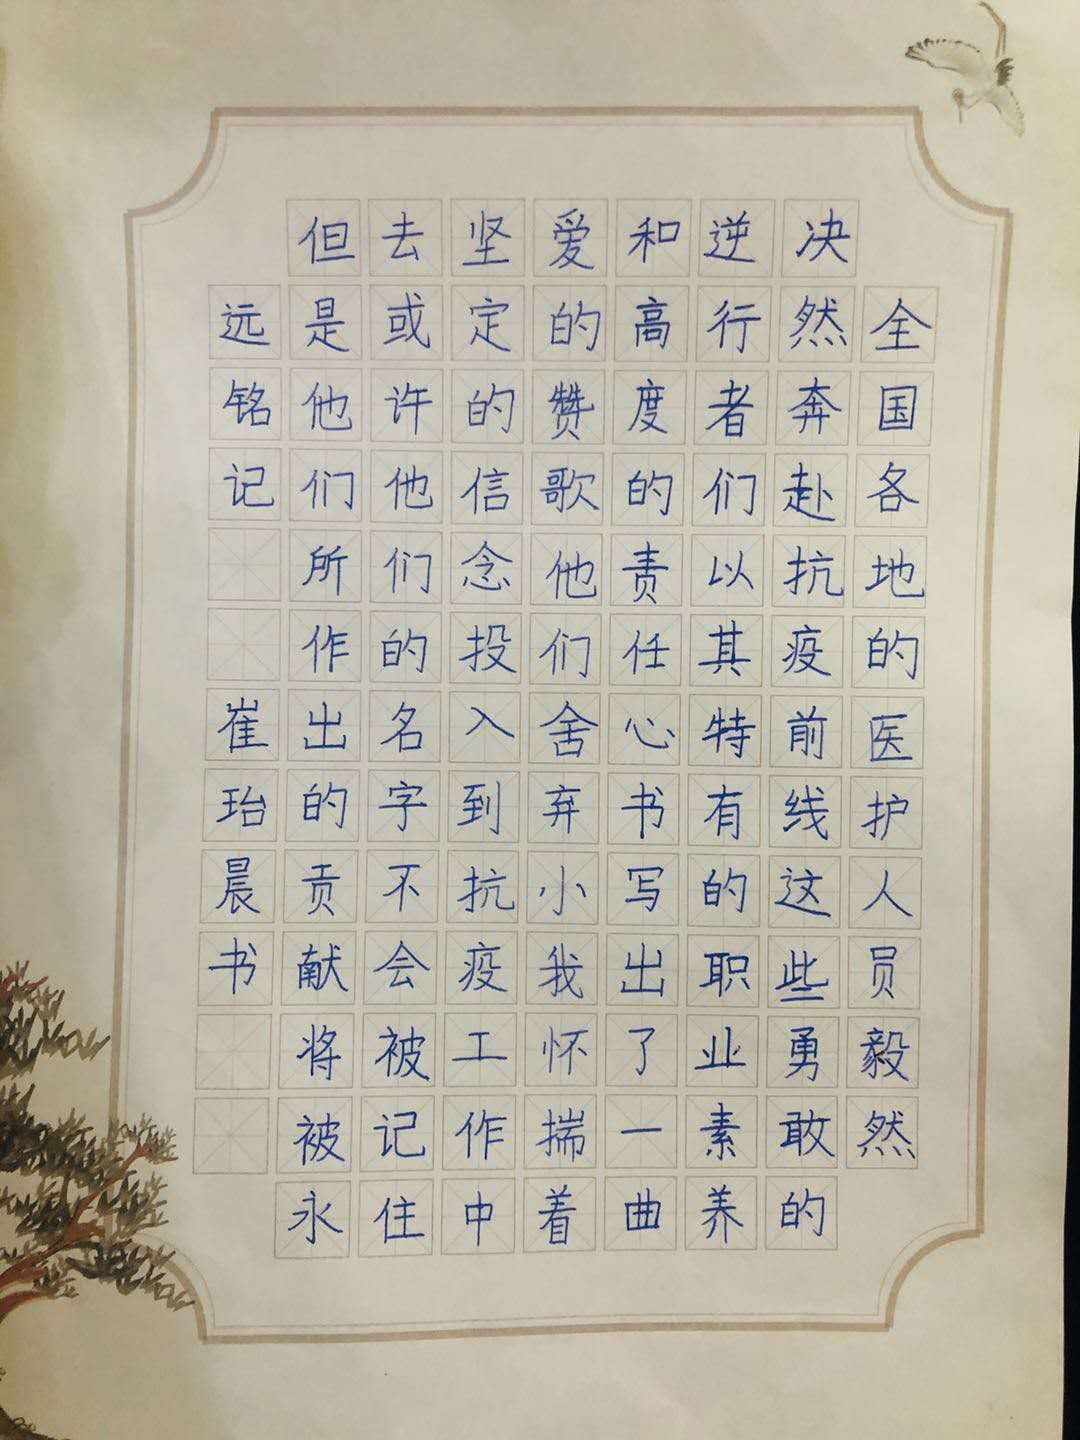 全国各地的医护人员毅然
决然奔赴抗疫前线这些勇敢的
逆行者们以其特有的职业素养
和高度的责任心书写出了一曲
爱的赞歌他们舍弃小我怀揣着
坚定的信念投入到抗疫工作中
去或许他们的名字不会被记住
但是他们所作出的贡献将被永
远铭记
崔珆晨书